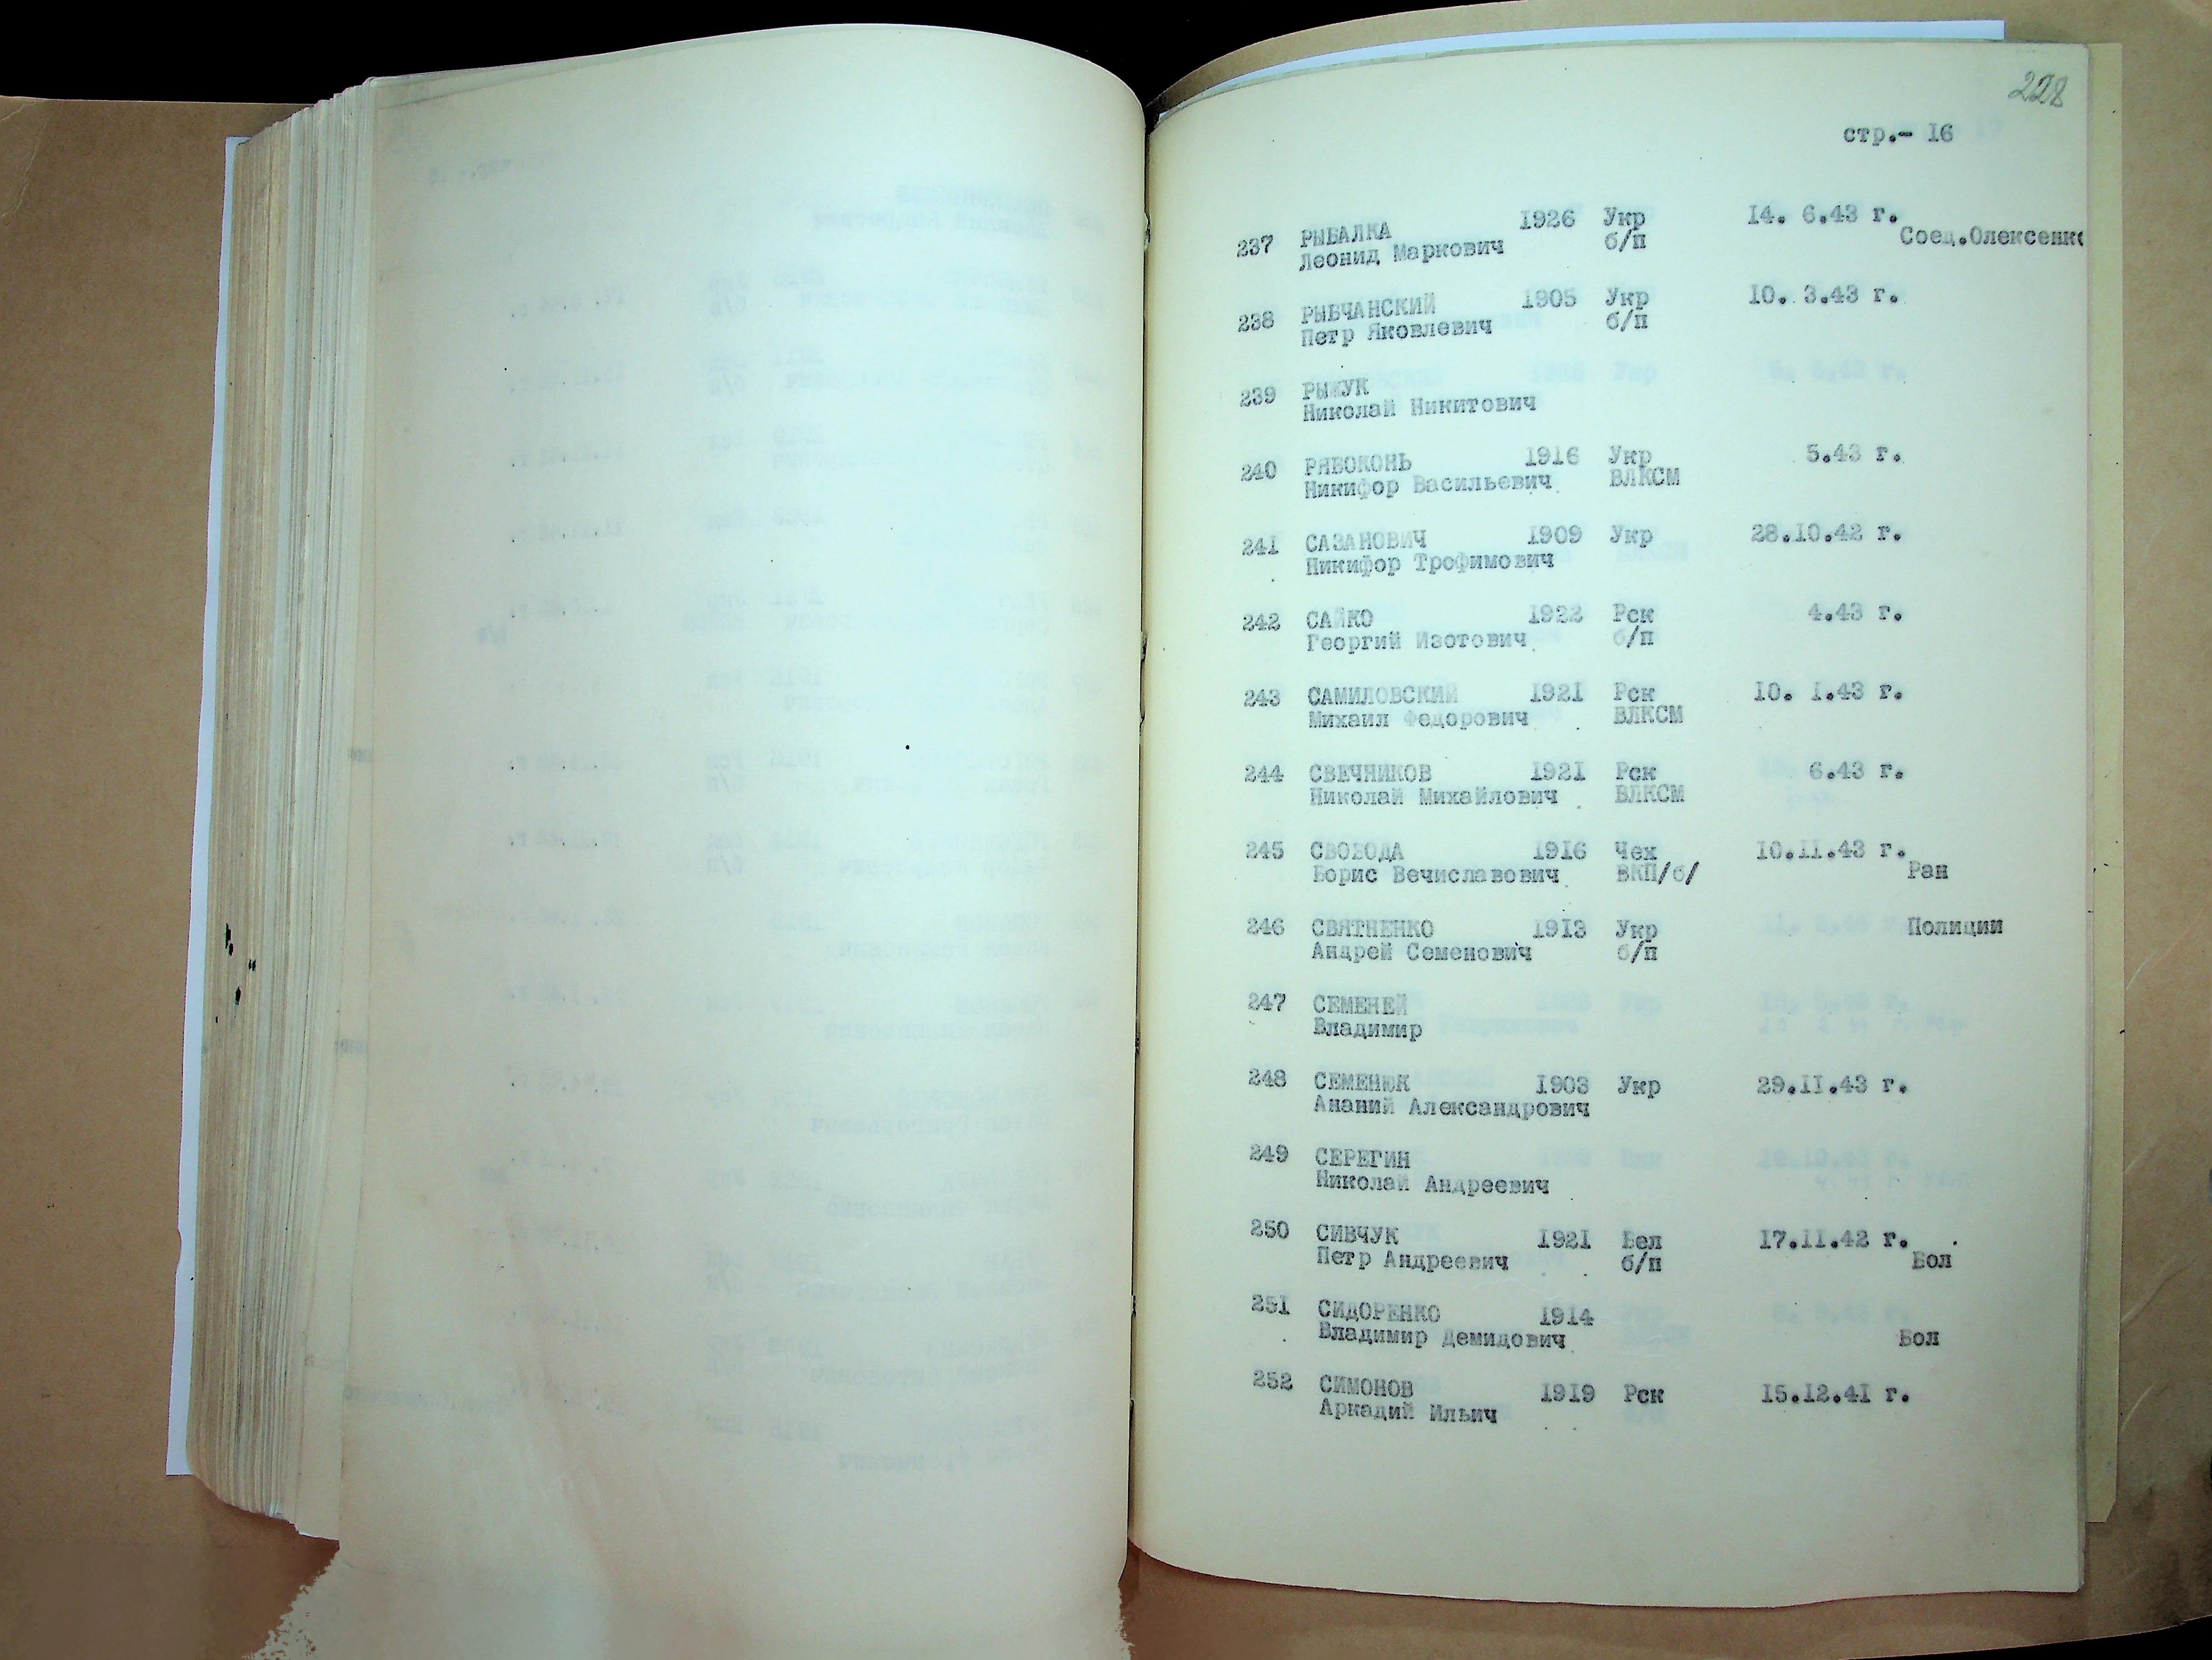 228
стр.- 16
237 РЫБАЛКА 1926 Укр 14. 6.43 г.
Леонид Маркович б/п Соед.Олексенко
238 РЫБЧАНСКИЙ 1905 Укр 10. 3.43 г.
Петр Яковлевич б/п
239 РЫЖУК
Николай Никитович
240 РЯБОКОНЬ 1916 Укр 5.43 г.
Никифор Васильевич ВЛКСМ
241 САЗАНОВИЧ 1909 Укр 28.10.42 г.
Никифор Трофимович
242 САЙКО 1922 Рск 4.43 г.
Георгий Изотович б/п
243 САМИЛОВСКИЙ 1921 Рск 10. 1.43 г.
Михаил Федорович ВЛКСМ
244 СВЕЧНИКОВ 1921 Рск 6.43 г.
Николай Михайлович ВЛКСМ
245 СВОБОДА 1916 Чех 10.11.43 г.
Борис Вечиславович ВКП/б/ Ран
246 СВЯТНЕНКО 1913 Укр Полиции
Андрей Семенович б/п
247 СЕМЕНЕЙ
Владимир
248 СЕМЕНЮК 1903 Укр 29.11.43 г.
Ананий Александрович
249 СЕРЕГИН
Николай Андреевич
250 СИВЧУК 1921 Бел 17.11.42 г.
Петр Андреевич б/п Бол
251 СИДОРЕНКО 1914
Владимир Демидович Бол
252 СИМОНОВ 1919 Рск 15.12.41 г.
Аркадий Ильич